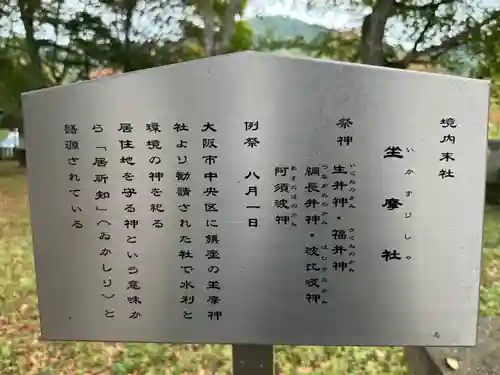 境内末社
坐摩社
いかすりしゃ
祭神
生井神・福井神
いくゐのかみ
さくゐのかみ
綱長井神・波比岐神
つながゐのかみ
はひきのかみ
阿須波神
あすはのかみ
例祭 八月一日
大阪市中央区に鎮座の坐摩神
社より勧請された社で水利と
環境の神を祀る
居住地を守る神という意味か
ら「居所知」(ゐかしり)と
語源されている